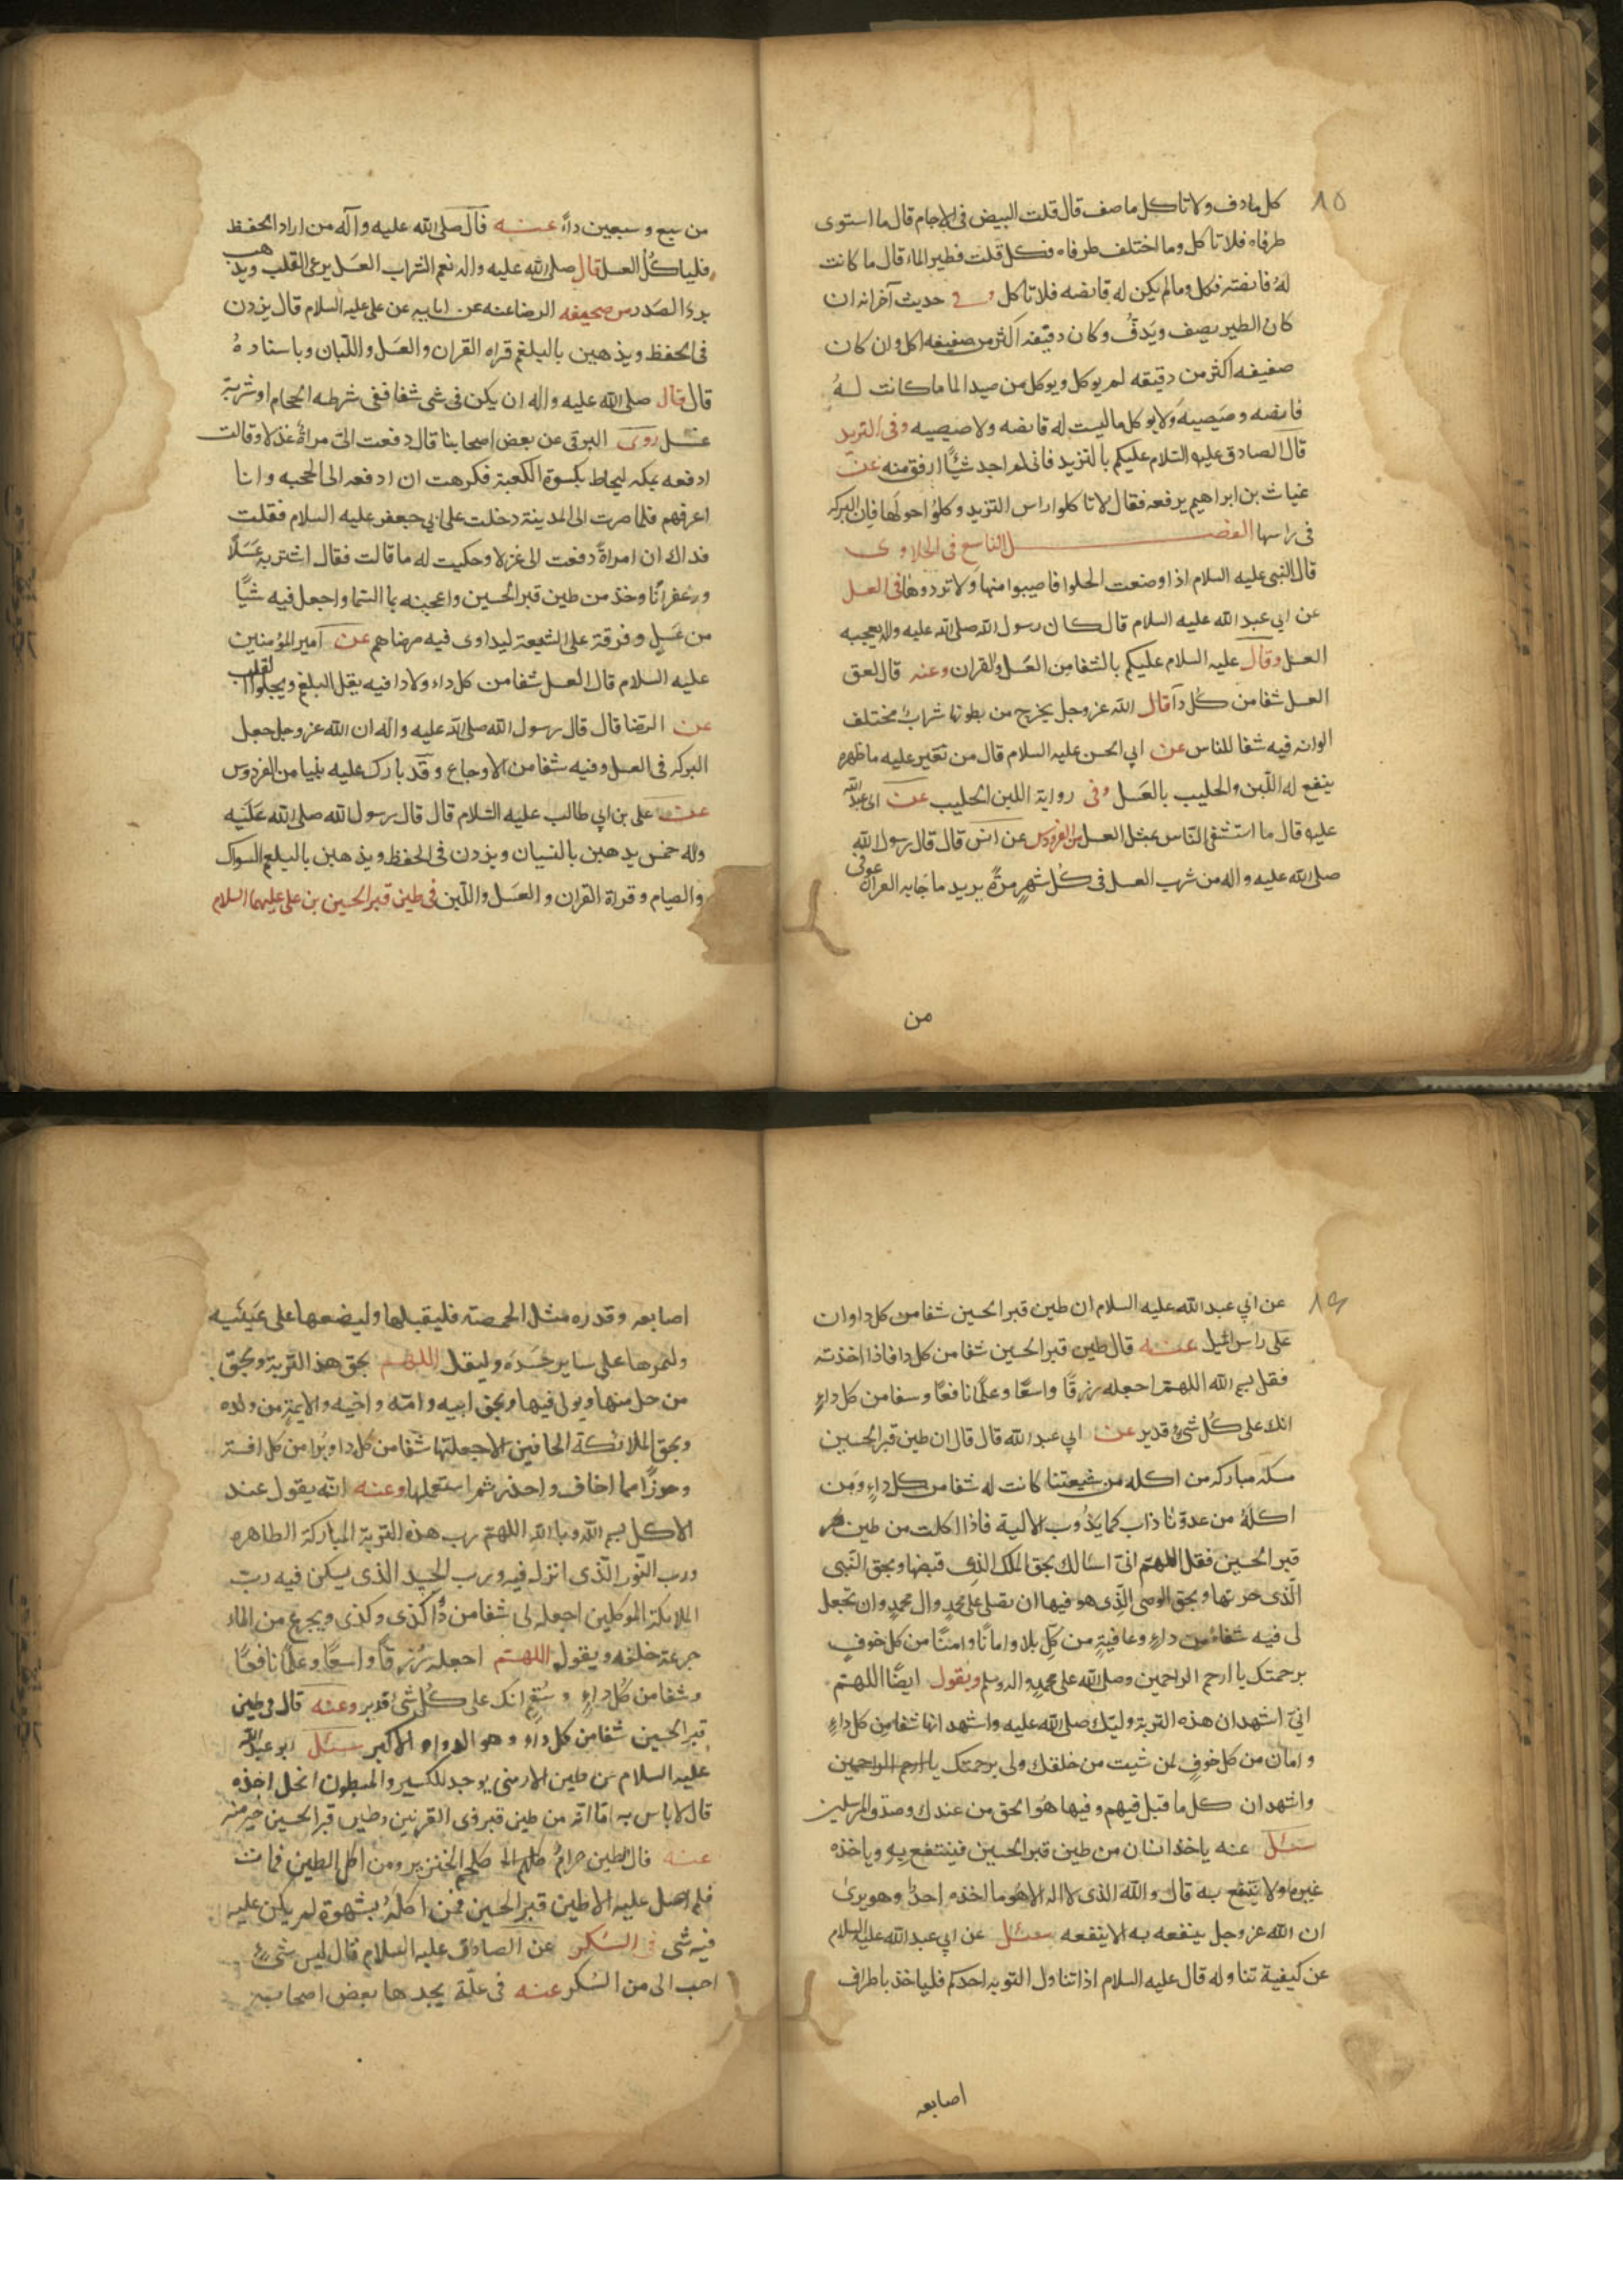 ٨٥
كل ما دف ولا تاكل ما صف قال قلت البيض فى الاجام قال ما استوى
طرفاه فلا تاكل وما اختلف طرفاه فكل قلت فطير الماء قال ما كانت
له قانصته فكل وما لم يكن له قانصه فلا تاكل وفى حديث آخر انه ان
كان الطير يصف ويدف وكان دفيفه اكثر من صفيفه اكل وان كان
صفيفه اكثر من دفيفه لم يوكل ويوكل من صيد الما ما كانت له
قانصه وصيصيه ولا يوكل ما ليست له قانصه ولا صيصيه وفى الثريد
قال الصادق عليه السلام عليكم بالثريد فانى لم اجد شيئا ارفق منه عن
غياث بن ابراهيم يرفعه فقال لا تا كلوا راس الثريد وكلوا حولها فان البركه
فى راسها الفصل التاسع فى الحلاوى
قال النبى عليه السلام اذا وضعت الحلوا فاصيبوا منها ولا تردوها فى العسل
عن ابي عبد الله عليه السلام قال كان رسول الله صلى الله عليه واله يعجبه
العسل وقال عليه السلام عليكم بالشفا من العسل والقران وعنه قال لعق
العسل شفا من كل دآ قال الله عز وجل يخرج من بطونها شراب مختلف
الوانه فيه شفا للناس عن ابي الحسن عليه السلام قال من تغير عليه ما ظهره
ينفع له اللبن والحليب بالعسل وفى رواية اللبن الحليب عن ابى عبد الله
عليه قال ما استشفى الناس بمثل العسل من الفردوس عن انس قال قال رسول الله
صلى الله عليه واله من شرب العسل فى كل شهر مرة يريد ما جا به القران عوفى
من
من سبع وسبعين داء عنه قال صلى الله عليه واله من اراد الحفظ
فلياكل العسل قال صلى الله عليه واله نعم الشراب العسل يرعى القلب ويذهب
برد الصدر من صحيفه الرضا عنه عن ابايه عن على عليه السلام قال يزدن
فى الحفظ ويذهبن بالبلغم قراه القران والعسل واللبان وباسناده
قال قال صلى الله عليه واله ان يكن فى شى شفا ففى شرطه الحجام او شربة
عسل روى البرقى عن بعض اصحابنا قال دفعت الى مراة غزلا وقالت
ادفعه بمكه ليخاط بكسوة الكعبة فكرهت ان ادفعه الى الحجبه وانا
اعرفهم فلما صرت الى المدينة دخلت على ابي جعفر عليه السلام فقلت
فداك ان امراة دفعت الى غزلا وحكيت له ما قالت فقال اشتر به عسلا
وزعفرانا وخذ من طين قبر الحسين واعجنه بما السما واجعل فيه شيا
من عسل وفرقة على الشيعة ليداوى فيه مرضاهم عن امير المؤمنين
عليه السلام قال العسل شفا من كل داء ولا دا فيه يقل البلغم ويجلوا القلب
عن الرضا قال قال رسول الله صلى الله عليه واله ان الله عز وجل جعل
البركه فى العسل وفيه شفا من الاوجاع وقد بارك عليه نبيا من الفردوس
عن على بن ابي طالب عليه السلام قال قال رسول الله صلى الله عليه
واله خمس يذهبن بالنسيان ويزدن فى الحفظ ويذهبن بالبلغم السواك
والصيام وقراة القران والعسل واللبن فى طين قبر الحسين بن على عليهما السلام
٨٦
عن ابي عبد الله عليه السلام ان طين قبر الحسين شفا من كل دا وان
على راس الميل عنه قال طين قبر الحسين شفا من كل دا فاذا اخذته
فقل بسم الله اللهم اجعله رزقا واسعا وعلما نافعا وسفا من كل داء
انك على كل شى قدير عن ابي عبد الله قال قال ان طين قبر الحسين
مسكه مباركه من اكله من شيعتنا كانت له شفا من كل داء ومن
اكله من عدونا ذاب كما يذوب الالية فاذا اكلت من طين
قبر الحسين فقل اللهم انى اسالك بحق الملك الذى قبضها وبحق النبى
الذى خزنها وبحق الوصى الذى هو فيها ان تصلى على محمد وال محمد وان تجعل
لى فيه شفاء من داء وعافية من كل بلا وامانا وامنا من كل خوف
برحمتك يا ارحم الراحمين وصلى الله على محمد واله وسلم ويقول ايضا اللهم
انى اشهد ان هذه التربة وليك صلى الله عليه واشهد انها شفا من كل داء
وامان من كل خوف لمن شيت من خلقك ولى برحمتك يا ارحم الراحمين
واشهد ان كل ما قيل فيهم وفيها هو الحق من عندك وصدق المرسلين
سئل عنه ياخذ انسان من طين قبر الحسين فينتفع به وياخذه
غيره ولا ينتفع به قال والله الذى لا اله الا هو ما اخذه احد وهو يرى
ان الله عز وجل ينفعه به الا ينفعه سئل عن ابي عبد الله عليه السلام
عن كيفية تناوله قال عليه السلام اذا تناول التربه احدكم فلياخذ باطراف
اصابعه
اصابعه وقدره مثل الحمصة فليقبلها وليضعها على عينيه
وليمرها على ساير جسده وليقل اللهم بحق هذه التربة وبحق
من حل منها وثوى فيها وبحق ابيه وامه واخيه والايمة من ولده
وبحق الملائكة الحافين الا جعلتها شفا من كل دا وبرا من كل افة
وحرزا مما اخاف واحذر ثم استعملها وعنه انه يقول عند
الاكل بسم الله وبالله اللهم رب هذه التربة المباركة الطاهره
ورب النور الذى انزل فيه ورب الجسد الذى يسكن فيه ورب
الملائكة الموكلين اجعله لى شفا من دآ كذى وكذى ويجرع من الماء
جرعة خلفه ويقول اللهم اجعله رزقا واسعا وعلما نافعا
وشفا من كل داء وسقم انك على كل شئ قدير وعنه قال فى طين
قبر الحسين شفا من كل داء وهو الدواء الاكبر سئل ابو عبد الله
عليه السلام عن طين الارمنى يوجد للكسير والمبطون ايحل اخذه
قال لا باس به اما انه من طين قبر ذى القرنين وطين قبر الحسين خير منه
عنه قال الطين حرام كلحم الخنزير ومن اكل الطين فمات
فلم اصل عليه الا طين قبر الحسين فمن اكله بشهوة لم يكن عليه
فيه شى فى السكر عن الصادق عليه السلام قال ليس شئ
احب الى من السكر عنه فى علة يجدها بعض اصحابه